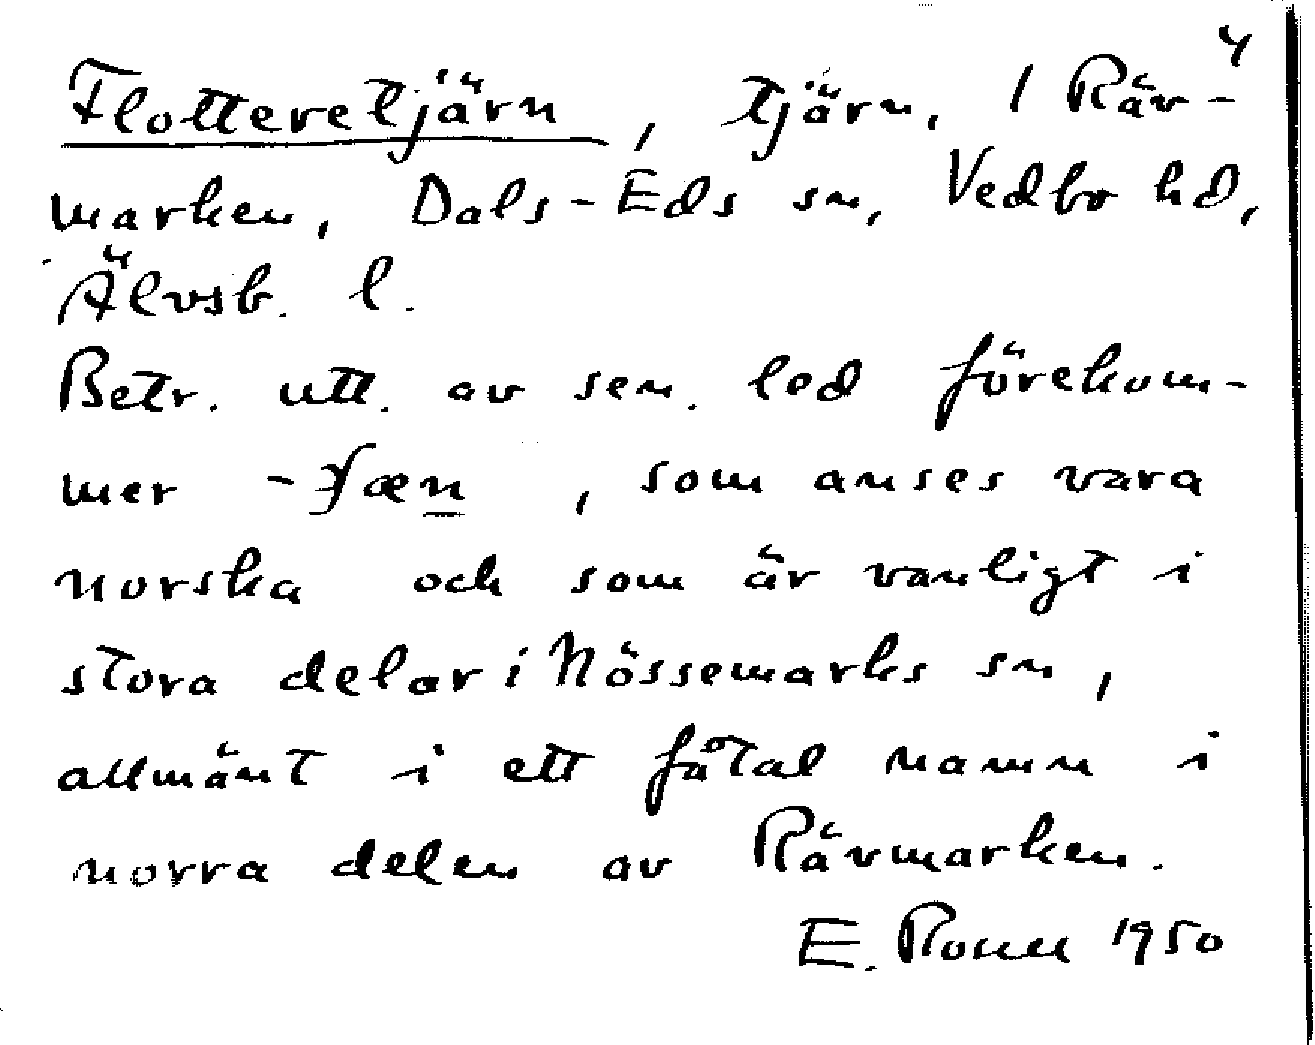 Flotteretjärn, tjärn, 1 Räv-
marken, Dals-Eds sn, Vedbo hd,
Älvsb. l.
Betr. utt. av sen. led förekom-
mer -ʃæn, som anses vara
norska och som är vanligt i
stora delar i Nössemarks sn,
allmänt i ett fåtal namn i
norra delen av Rävmarken.
E. 1950